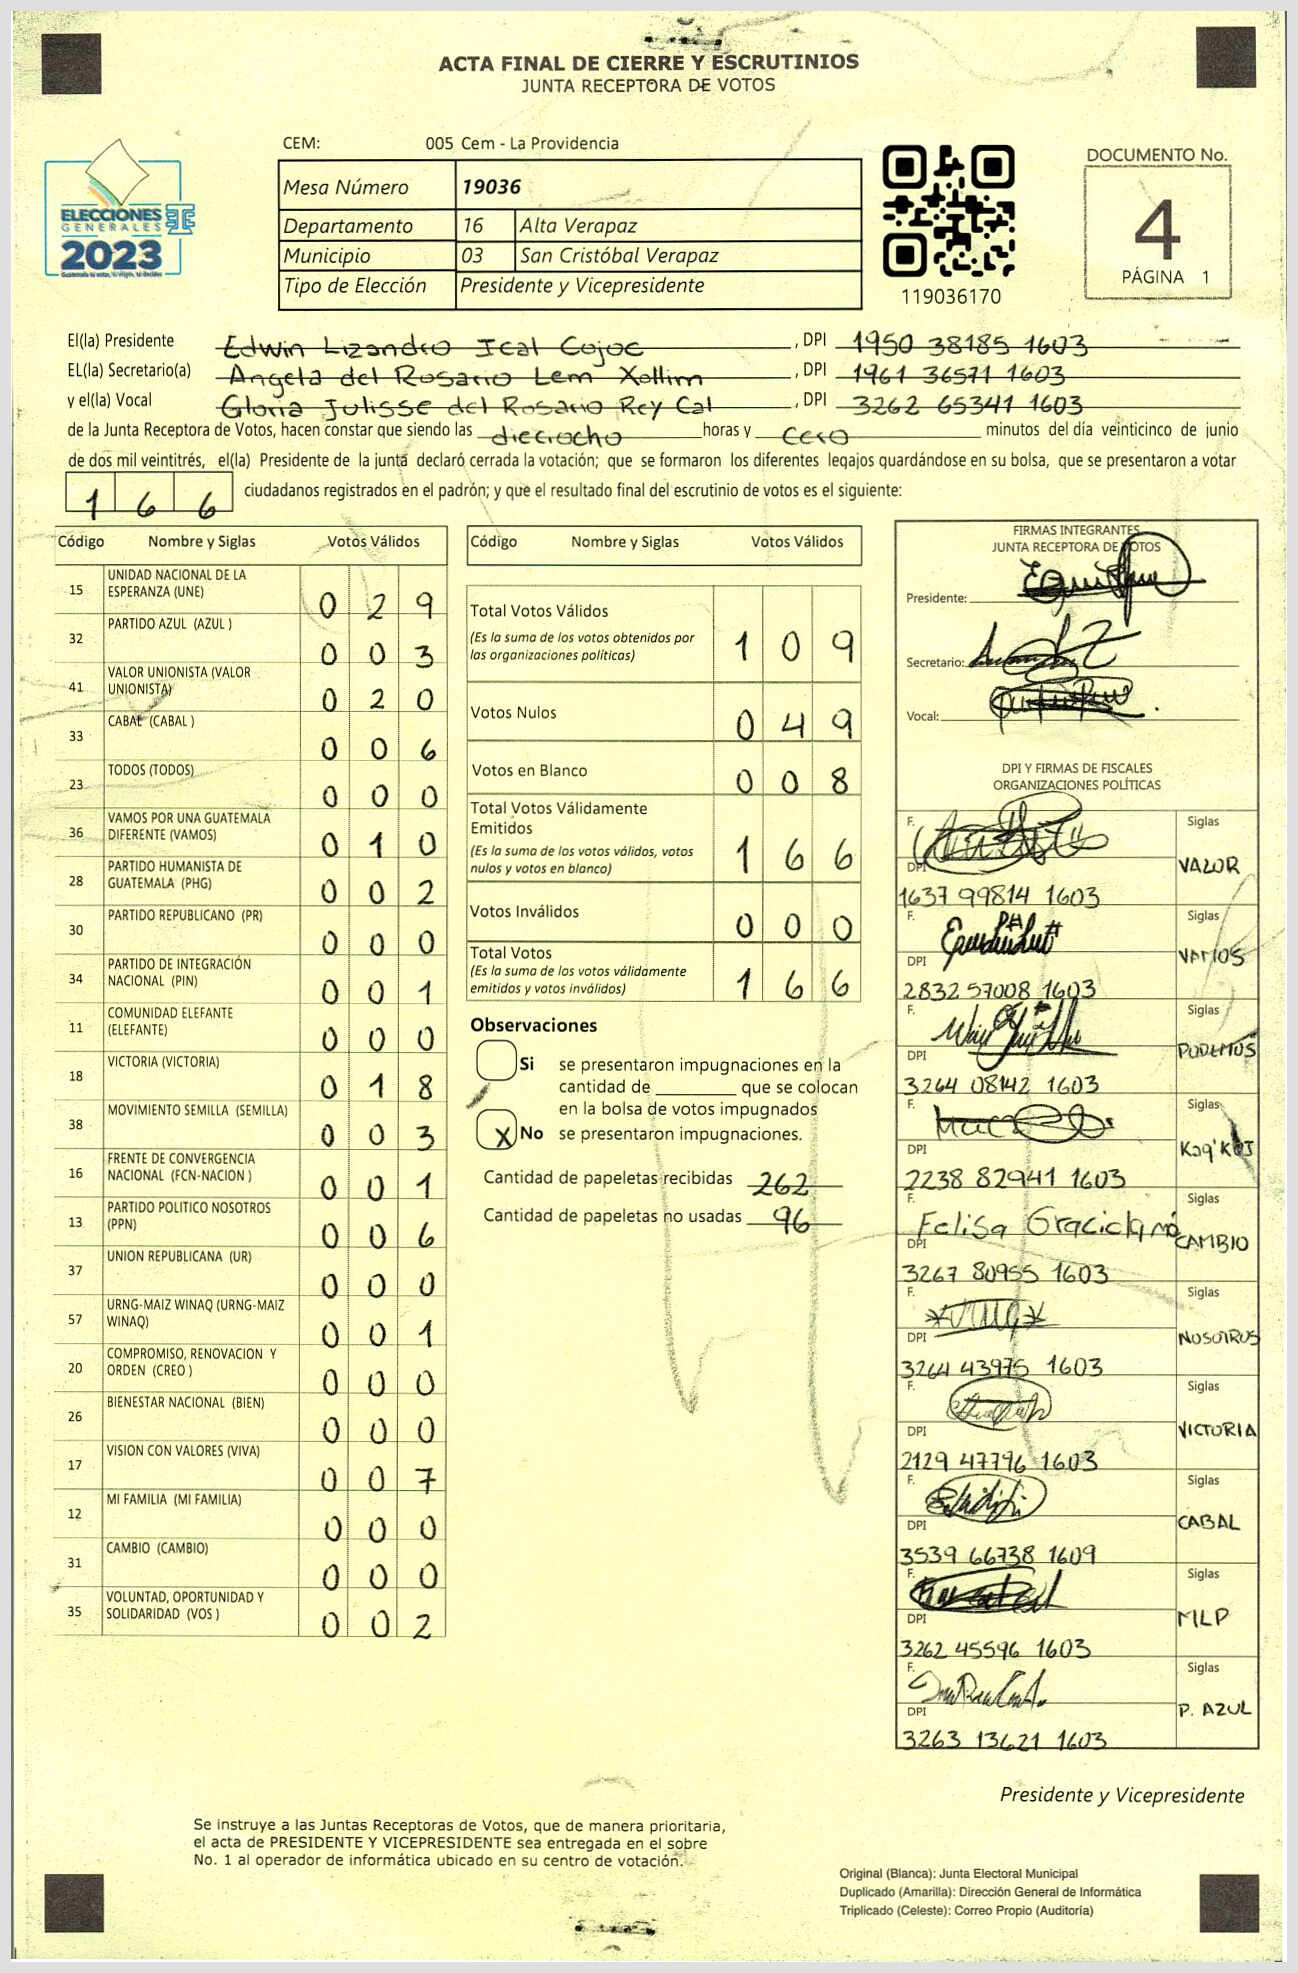 ACTA FINAL DE CIERRE Y ESCRUTINIOS
JUNTA RECEPTORA DE VOTOS
CEM: 005 Cem - La Providencia
ELECCIONES
GENERALES
2023
Mesa Número 19036
Departamento 16 Alta Verapaz
Municipio 03 San Cristóbal Verapaz
Tipo de Elección Presidente y Vicepresidente
119036170
DOCUMENTO No.
4
PÁGINA 1
El(la) Presidente Edwin Lizandro Ical Cojoc, DPI 1950 38185 1603
EL(la) Secretario(a) Angela del Rosario Lem Xollim, DPI 1961 36571 1603
y el(la) Vocal Gloria Julisse del Rosario Rey Cal, DPI 3262 65341 1603
de la Junta Receptora de Votos, hacen constar que siendo las dieciocho horas y cero minutos del día veinticinco de junio
de dos mil veintitrés, el(la) Presidente de la junta declaró cerrada la votación; que se formaron los diferentes legajos guardándose en su bolsa, que se presentaron a votar
166 ciudadanos registrados en el padrón; y que el resultado final del escrutinio de votos es el siguiente:
Código Nombre y Siglas Votos Válidos
15 UNIDAD NACIONAL DE LA ESPERANZA (UNE) 029
32 PARTIDO AZUL (AZUL ) 003
41 VALOR UNIONISTA (VALOR UNIONISTA) 020
33 CABAL (CABAL ) 006
23 TODOS (TODOS) 000
36 VAMOS POR UNA GUATEMALA DIFERENTE (VAMOS) 010
28 PARTIDO HUMANISTA DE GUATEMALA (PHG) 002
30 PARTIDO REPUBLICANO (PR) 000
34 PARTIDO DE INTEGRACIÓN NACIONAL (PIN) 001
11 COMUNIDAD ELEFANTE (ELEFANTE) 000
18 VICTORIA (VICTORIA) 018
38 MOVIMIENTO SEMILLA (SEMILLA) 003
16 FRENTE DE CONVERGENCIA NACIONAL (FCN-NACION ) 001
13 PARTIDO POLITICO NOSOTROS (PPN) 006
37 UNION REPUBLICANA (UR) 000
57 URNG-MAIZ WINAQ (URNG-MAIZ WINAQ) 001
20 COMPROMISO, RENOVACION Y ORDEN (CREO ) 000
26 BIENESTAR NACIONAL (BIEN) 000
17 VISION CON VALORES (VIVA) 007
12 MI FAMILIA (MI FAMILIA) 000
31 CAMBIO (CAMBIO) 000
35 VOLUNTAD, OPORTUNIDAD Y SOLIDARIDAD (VOS ) 002
Código Nombre y Siglas Votos Válidos
Total Votos Válidos 109
(Es la suma de los votos obtenidos por
las organizaciones políticas)
Votos Nulos 049
Votos en Blanco 008
Total Votos Válidamente
Emitidos 166
(Es la suma de los votos válidos, votos
nulos y votos en blanco)
Votos Inválidos 000
Total Votos 166
(Es la suma de los votos válidamente
emitidos y votos inválidos)
Observaciones
Si se presentaron impugnaciones en la
cantidad de ________ que se colocan
en la bolsa de votos impugnados
X No se presentaron impugnaciones.
Cantidad de papeletas recibidas 262
Cantidad de papeletas no usadas 96
FIRMAS INTEGRANTES
JUNTA RECEPTORA DE VOTOS
Presidente:
Secretario:
Vocal:
DPI Y FIRMAS DE FISCALES
ORGANIZACIONES POLÍTICAS
F. Siglas
DPI VALOR
1637 99814 1603
F. Siglas
DPI VAMOS
2832 57008 1603
F. Siglas
DPI PODEMOS
3264 08142 1603
F. Siglas
DPI Kaq'Koj
2238 82941 1603
F. Felisa Graciela Siglas
DPI CAMBIO
3267 80955 1603
F. Siglas
DPI NOSOTROS
3264 43975 1603
F. Siglas
DPI VICTORIA
2129 47796 1603
F. Siglas
DPI CABAL
3539 66738 1609
F. Siglas
DPI MLP
3262 45596 1603
F. Siglas
DPI P. AZUL
3263 13621 1603
Presidente y Vicepresidente
Se instruye a las Juntas Receptoras de Votos, que de manera prioritaria,
el acta de PRESIDENTE Y VICEPRESIDENTE sea entregada en el sobre
No. 1 al operador de informática ubicado en su centro de votación.
Original (Blanca): Junta Electoral Municipal
Duplicado (Amarilla): Dirección General de Informática
Triplicado (Celeste): Correo Propio (Auditoría)